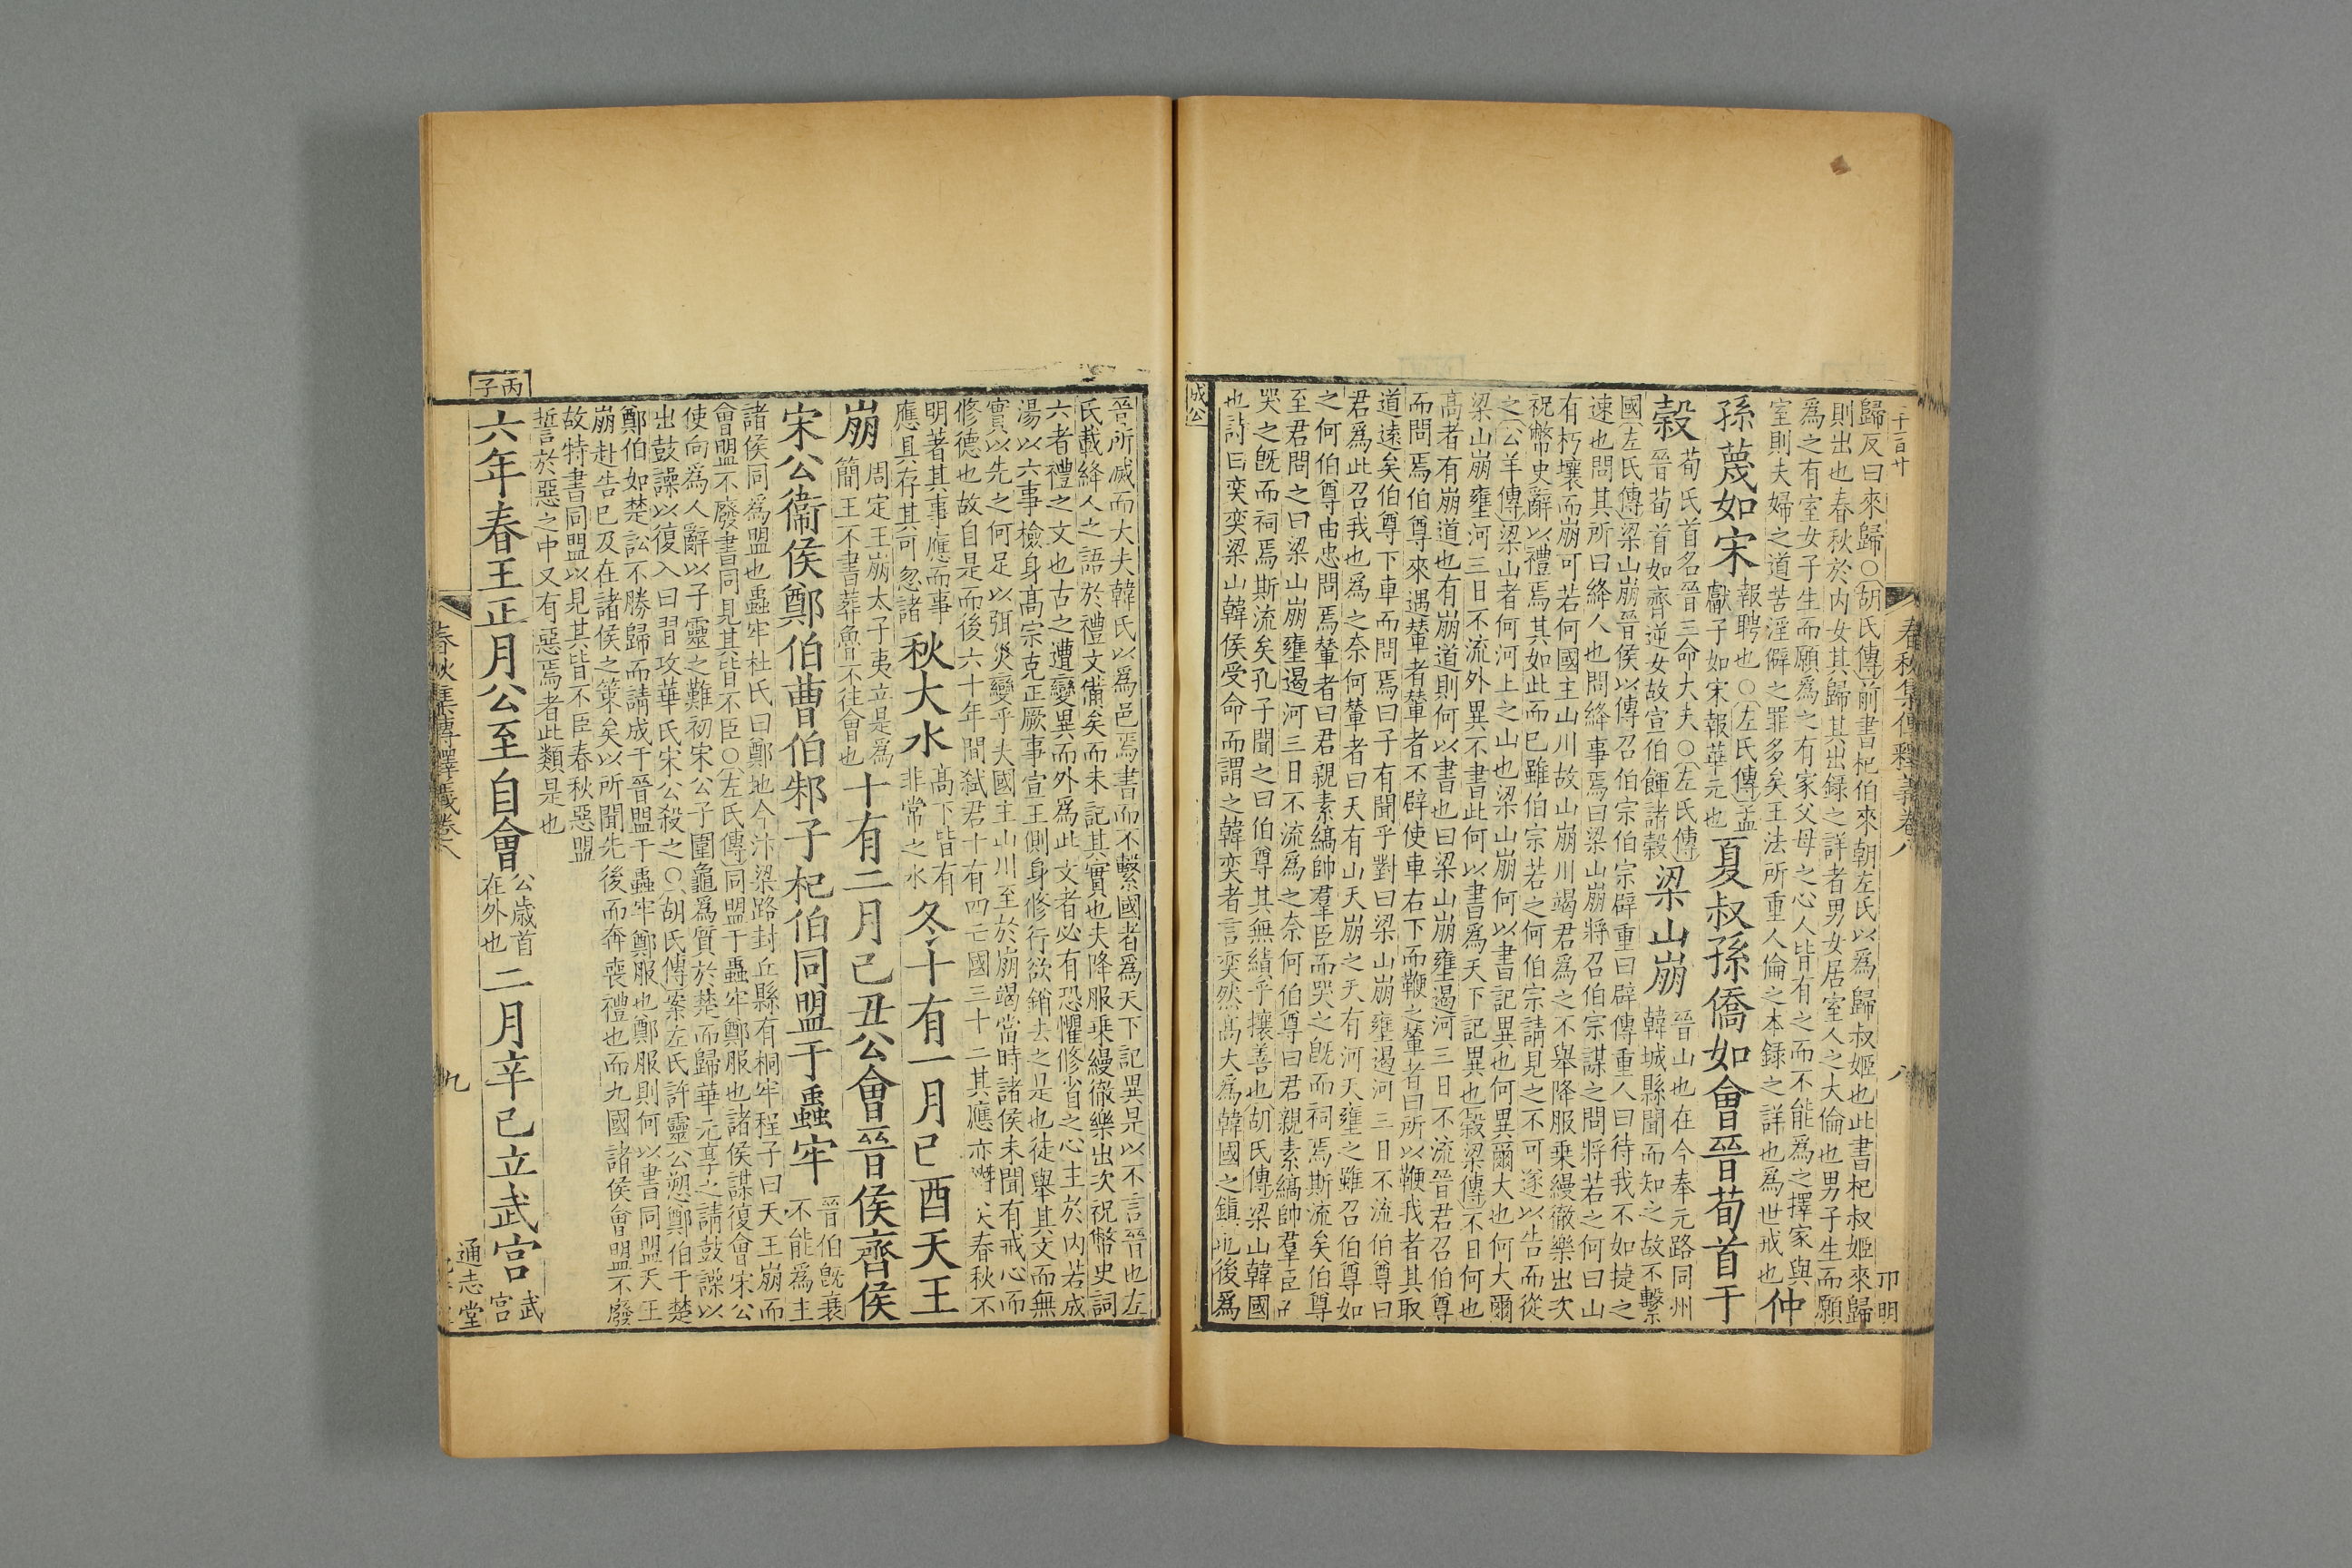 春秋集傳釋義卷八
八
卭明
歸反曰來歸○胡氏傳前書杞伯來朝左氏以爲歸叔姬也此書杞叔姬來歸
則出也春秋於內女其歸其出録之詳者男女居室人之大倫也男子生而願
爲之有室女子生而願爲之有家父母之心人皆有之而不能爲之擇家與
室則夫婦之道苦淫僻之罪多矣王法所重人倫之本録之詳也爲世戒也仲
孫蔑如宋報聘也○左氏傳孟
獻子如宋報華元也夏叔孫僑如會晉荀首于
穀荀氏首名晉三命大夫○左氏傳
晉荀首如齊逆女故宣伯餫諸穀梁山崩晉山也在今奉元路同州
韓城縣聞而知之故不繫
國左氏傳梁山崩晉侯以傳召伯宗伯宗辟重曰辟傳重人曰待我不如捷之
速也問其所曰絳人也問絳事焉曰梁山崩將召伯宗謀之問將若之何曰山
有朽壤而崩可若何國主山川故山崩川竭君爲之不舉降服乗縵徹樂出次
祝幣史辭以禮焉其如此而已雖伯宗若之何伯宗請見之不可遂以告而從
之公羊傳梁山者何河上之山也梁山崩何以書記異也何異爾大也何大爾
梁山崩壅河三日不流外異不書此何以書爲天下記異也穀梁傳不日何也
高者有崩道也有崩道則何以書也曰梁山崩壅遏河三日不流晉君召伯尊
而問焉伯尊來遇輦者輦者不辟使車右下而鞭之輦者曰所以鞭我者其取
道遠矣伯尊下車而問焉曰子有聞乎對曰梁山崩壅遏河三日不流伯尊曰
君爲此召我也爲之奈何輦者曰天有山天崩之天有河天壅之雖召伯尊如
之何伯尊由忠問焉輦者曰君親素縞帥羣臣而哭之旣而祠焉斯流矣伯尊
至君問之曰梁山崩壅遏河三日不流爲之奈何伯尊曰君親素縞帥羣臣而
哭之旣而祠焉斯流矣孔子聞之曰伯尊其無績乎攘善也胡氏傳梁山韓國
也詩曰奕奕梁山韓侯受命而謂之韓奕者言奕然高大爲韓國之鎮也後爲
成公
晉所滅而大夫韓氏以爲邑焉書而不繫國者爲天下記異是以不言晉也左
氏載絳人之語於禮文備矣而未記其實也夫降服乗縵徹樂出次祝幣史詞
六者禮之文也古之遭變異而外爲此文者必有恐懼修省之心主於内若成
湯以六事檢身高宗克正厥事宣王側身修行欲銷去之是也徒舉其文而無
實以先之何足以弭災變乎夫國主山川至於崩竭當時諸侯未聞有戒心而
修德也故自是而後六十年間弑君十有四亡國三十二其應亦憯矣春秋不
明著其事應而事
應具存其可忽諸秋大水高下皆有
非常之水冬十有一月己酉天王
崩周定王崩太子夷立是爲
簡王不書葬魯不往會也十有二月己丑公會晉侯齊侯
宋公衞侯鄭伯曹伯邾子杞伯同盟于蟲牢晉伯旣衰
不能爲主
諸侯同爲盟也蟲牢杜氏曰鄭地今汴梁路封丘縣有桐牢程子曰天王崩而
會盟不廢書同見其皆不臣○左氏傳同盟于蟲牢鄭服也諸侯謀復會宋公
使向爲人辭以子靈之難初宋公子圍龜爲質於楚而歸華元享之請鼓譟以
出鼓譟以復入曰習攻華氏宋公殺之○胡氏傳案左氏許靈公愬鄭伯于楚
鄭伯如楚訟不勝歸而請成于晉盟于蟲牢鄭服也鄭服則何以書同盟天王
崩赴告已及在諸侯之策矣以所聞先後而奔喪禮也而九國諸侯會盟不廢
故特書同盟以見其皆不臣春秋惡盟
誓於惡之中又有惡焉者此類是也
丙子
六年春王正月公至自會公歳首
在外也二月辛巳立武宮武
宮
春秋集傳釋義卷八
九
通志堂